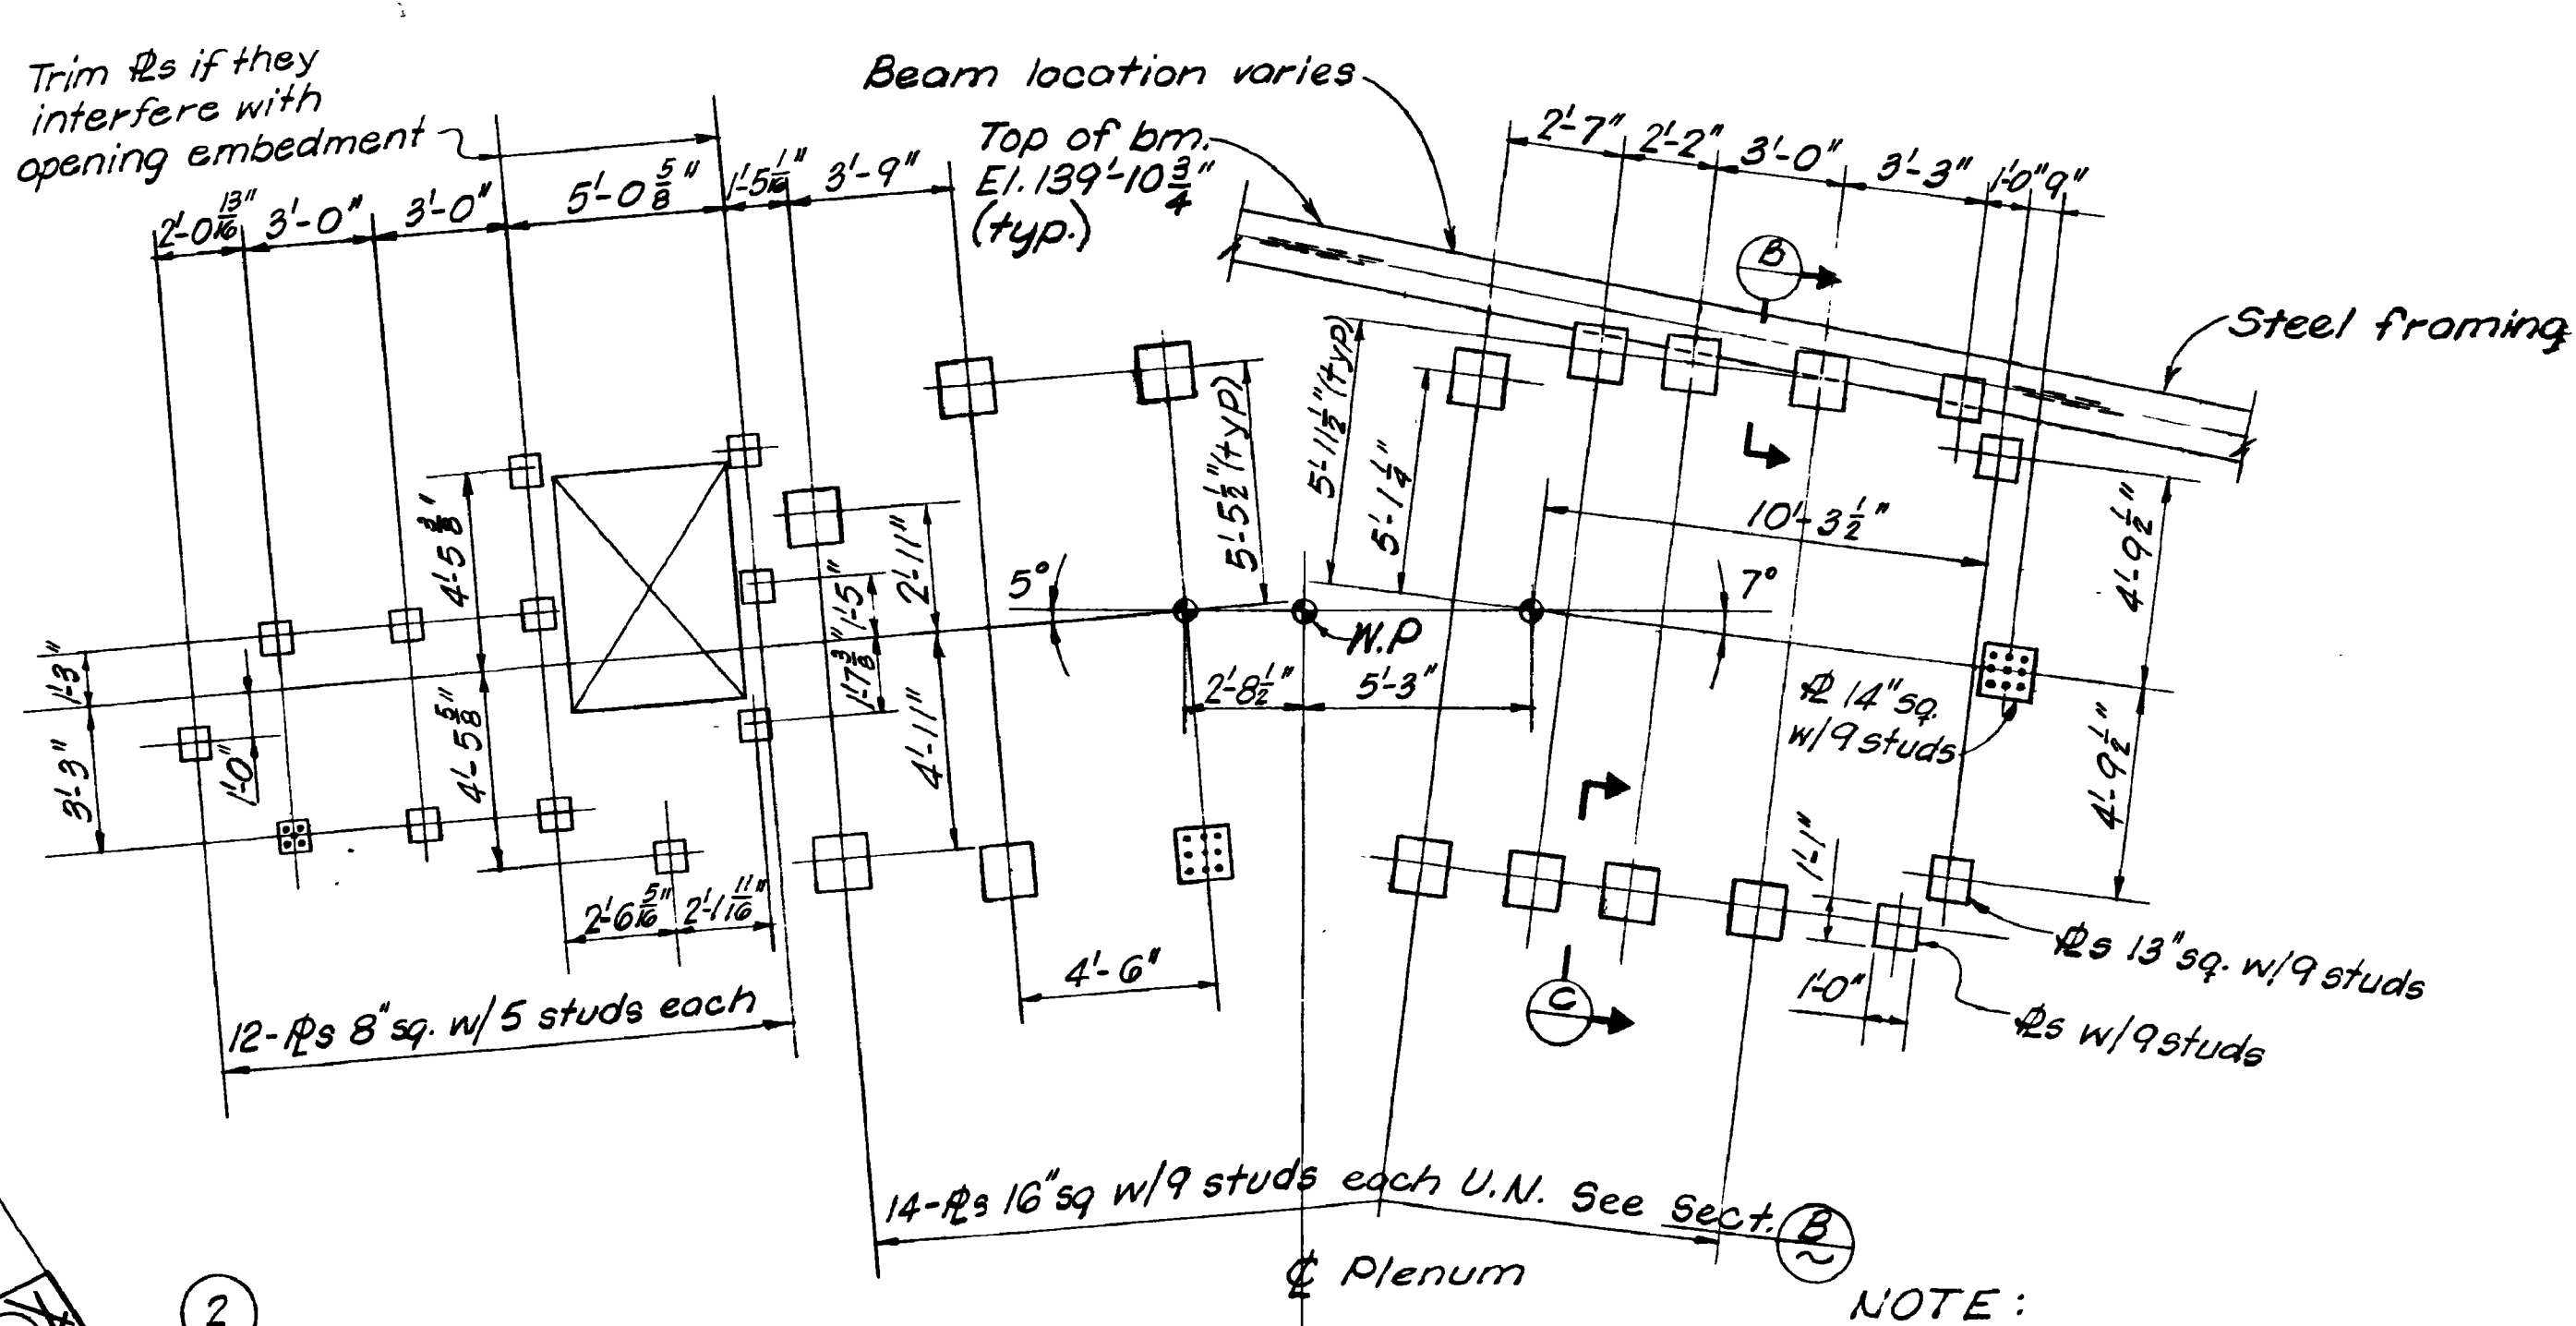 Trim ℙLs if they
interfere with
opening embedment
Beam location varies
Top of bm.
El. 139'-10 3/4"
(typ.)
2'-0 13/16"
3'-0"
3'-0"
5'-0 5/8"
1'-5 1/16"
3'-9"
2'-7"
2'-2"
3'-0"
3'-3"
1'-0"
9"
B
Steel framing
5'-11 1/2" (typ)
5'-1 1/4"
5'-5 1/2" (typ)
10'-3 1/2"
4'-9 1/2"
4'-5 3/8"
2'-11"
1'-5"
5°
7°
W.P
1'-3"
1'-7 3/8"
2'-8 1/2"
5'-3"
℄ 14" sq.
w/9 studs
3'-3"
1'-0"
4'-5 5/8"
4'-11"
4'-9 1/2"
1'-1"
2'-6 5/16"
2'-1 11/16"
4'-6"
1'-0"
C
PLs 13" sq. w/9 studs
PLs w/9 studs
12-PLs 8" sq. w/5 studs each
14-PLs 16" sq w/9 studs each U.N. See Sect. B
℄ Plenum
2
NOTE :